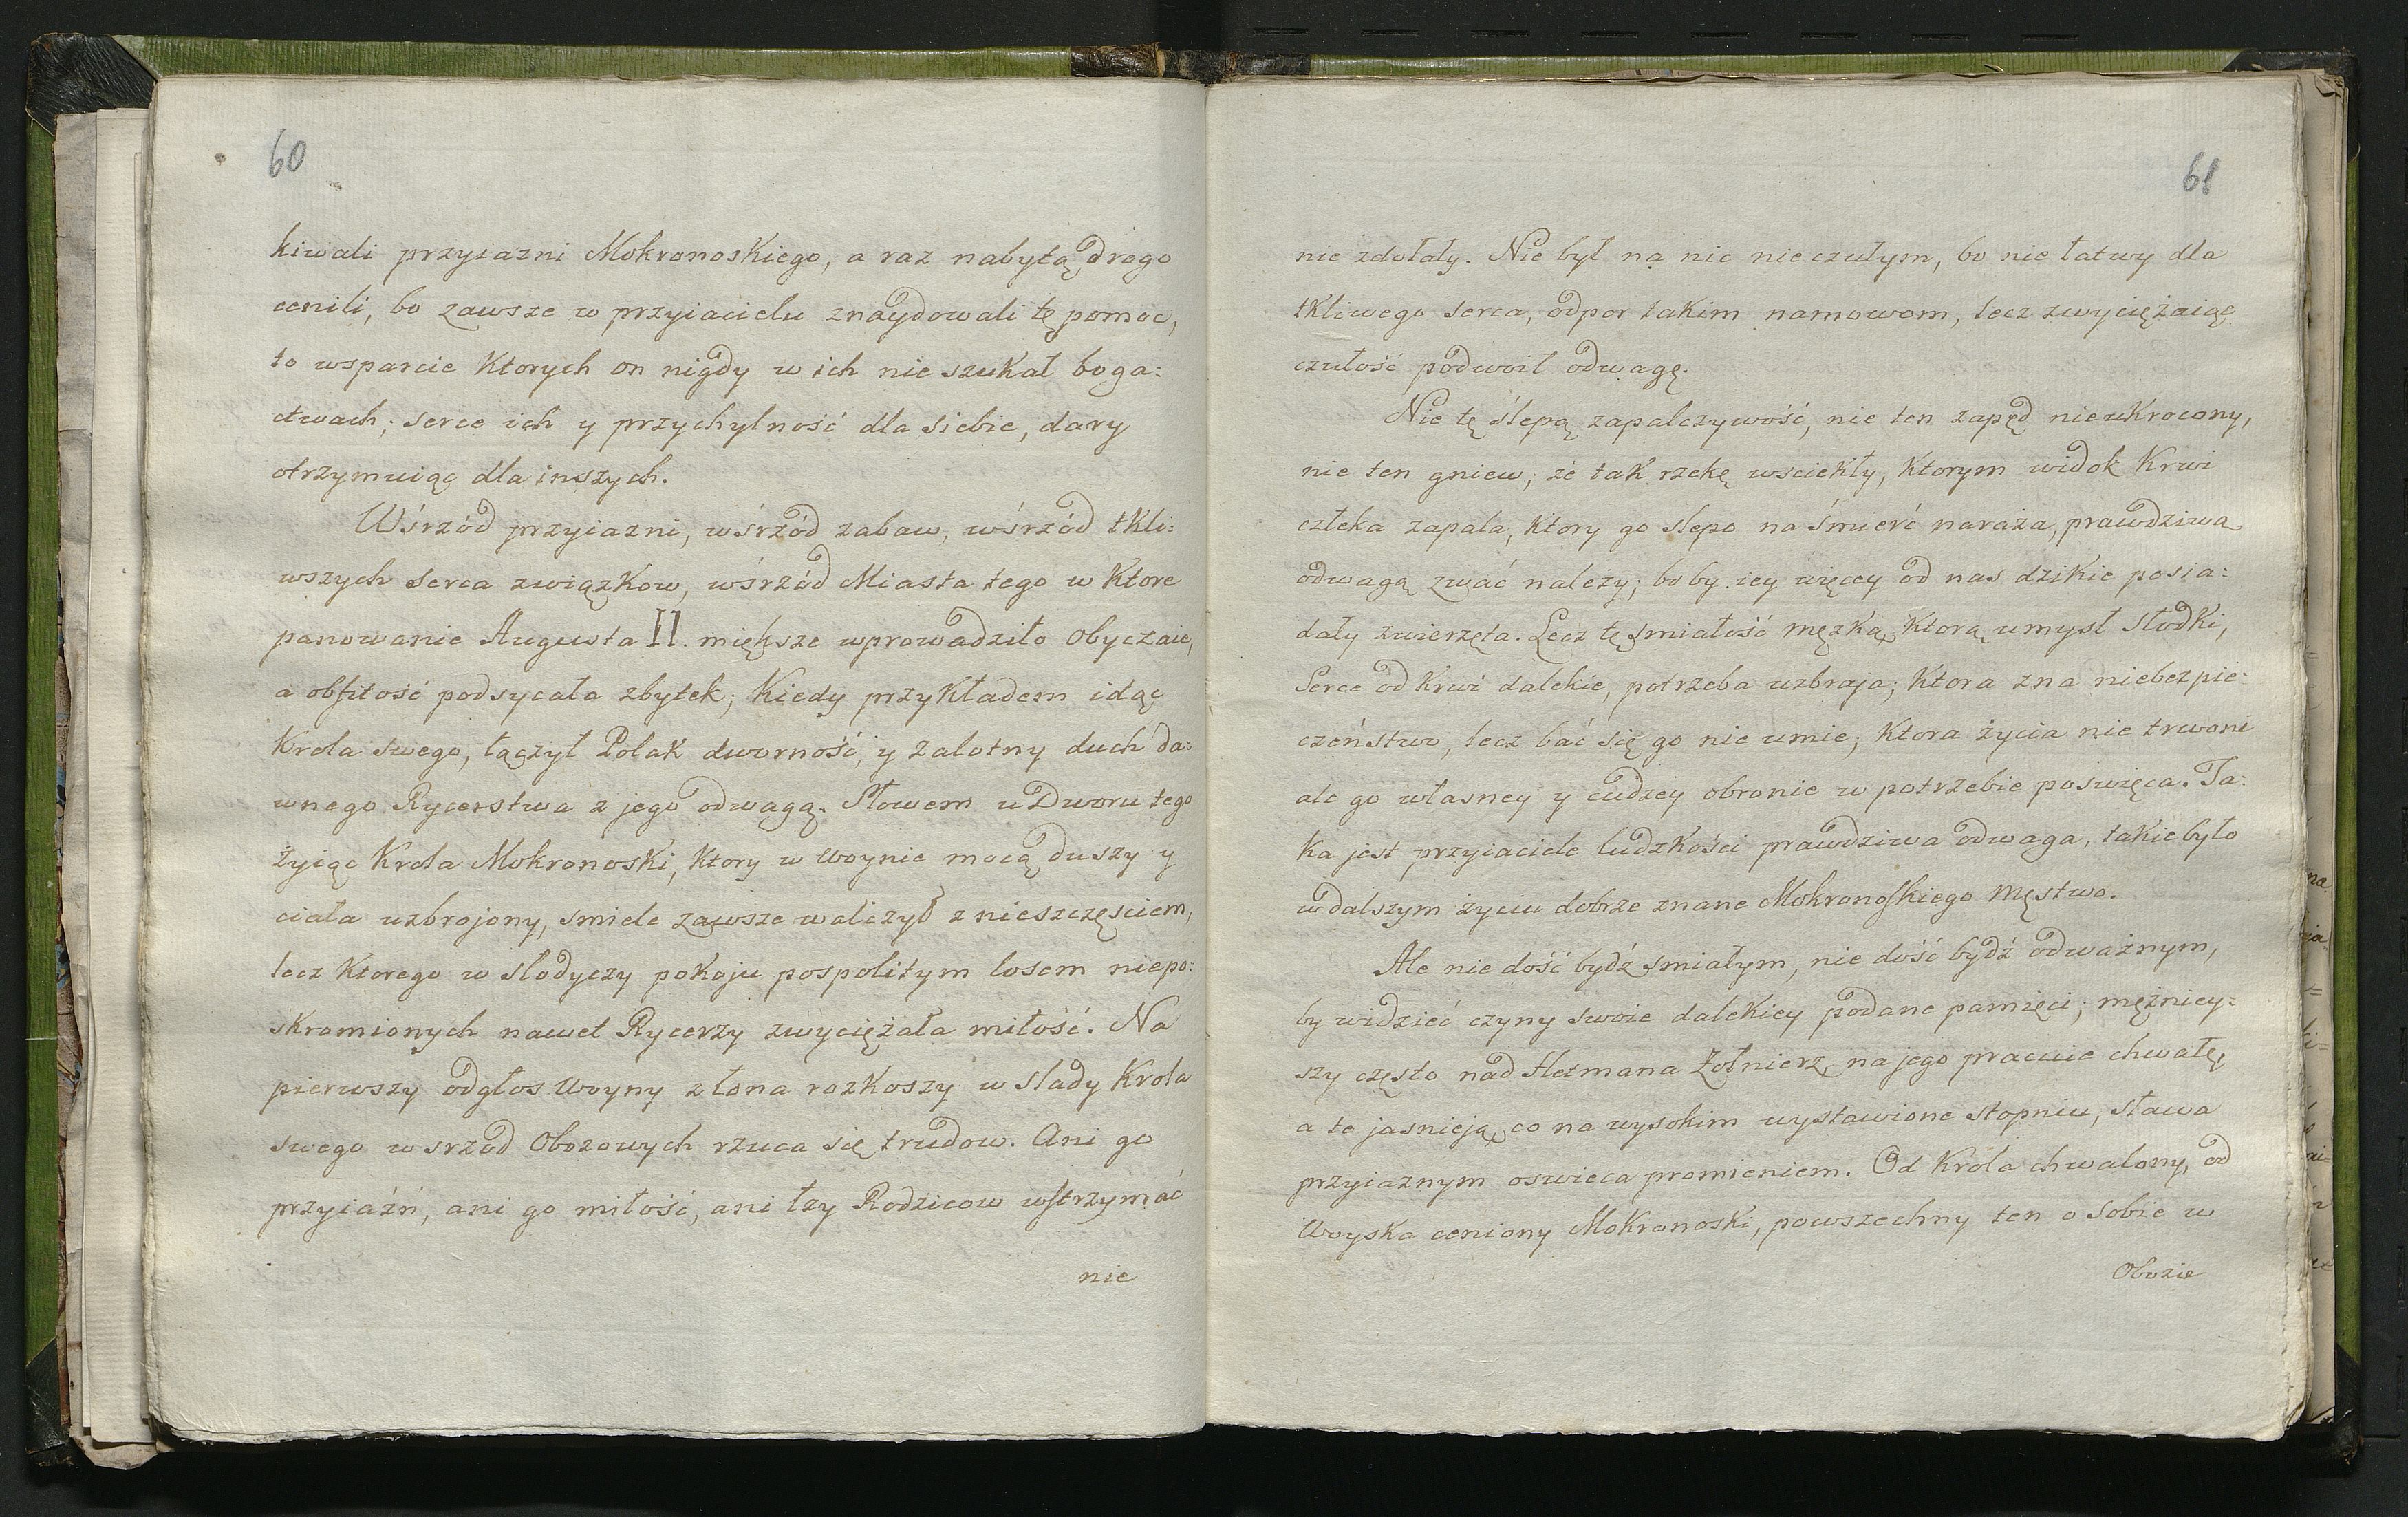 60
kiwali przyiazni Mokronoskiego, a raz nabytą drogo
cenili, bo zawsze w przyiacielu znaydowali tę pomoc,
to wsparcie Ktorych on nigdy w ich nie szukał boga:
ctwach; serce ich y przychylność dla siebie, dary
otrzymuiąc dla inszych.
Wśrzód przyiazni, wśrzód zabaw, wśrzód tkli:
wszych serca związkow, wśrzód Miasta tego w Ktore
panowanie Augusta II. miększe wprowadziło obyczaie,
a obfitość podsycała zbytek; Kiedy przykładem idąc
Krola swego, łączył Polak dworność, y zalotny duch da:
wnego Rycerstwa z jego odwagą. Słowem u Dworu tego
żyiąc Krola Mokronoski, Ktory w woynie mocą duszy y
ciała uzbrojony, smiele zawsze walczył z nieszczęsciem,
lecz Ktorego w słodyczy pokoju pospolitym losem niepo:
skromionych nawet Rycerzy zwyciężała miłość. Na
pierwszy odgłos Woyny z łona rozkoszy w slady Krola
swego wsrzód Obozowych rzuca się trudow. Ani go
przyiaźń, ani go miłość, ani łzy Rodzicow wstrzymać
nie
61
nie zdołały. Nie był na nic nie czułym, bo nie łatwy dla
tkliwego serca, odpor takim namowom, lecz zwyciężaiąc
czułość podwoił odwagę.
Nie tę ślepą zapalczywość, nie ten zapęd nieukrocony,
nie ten gniew, że tak rzekę wsciekły, Ktorym widok Krwi
człeka zapala, Ktory go slepo na śmierć naraża, prawdziwą
odwagą zwać należy; bo by iey więcey od nas dzikie posia:
dały zwierzęta. Lecz tę smiałość męzką, Ktorą umysł słodki,
Serce od krwi dalekie, potrzeba uzbraja; Ktora zna niebezpie:
czeństwo, lecz bać się go nie umie; Ktora życia nie trwoni
ale go własney y cudzey obronie w potrzebie poswięca. Ta:
Ka jest przyiaciele ludzkości prawdziwa odwaga, takie było
w dalszym życiu dobrze znane Mokronoskiego męstwo.
Ale nie dość bydź smiałym, nie dość bydź odważnym,
by widzieć czyny swoie dalekiey podane pamięci; mężniey:
szy często nad Hetmana Żołnierz, na jego pracuie chwałę,
a te jasnieją, co na wysokim wystawione stopniu, sława
przyiaznym oswieca promieniem. Od Króla chwalony, od
Woyska ceniony Mokronoski, powszechny ten o sobie w
Obozie